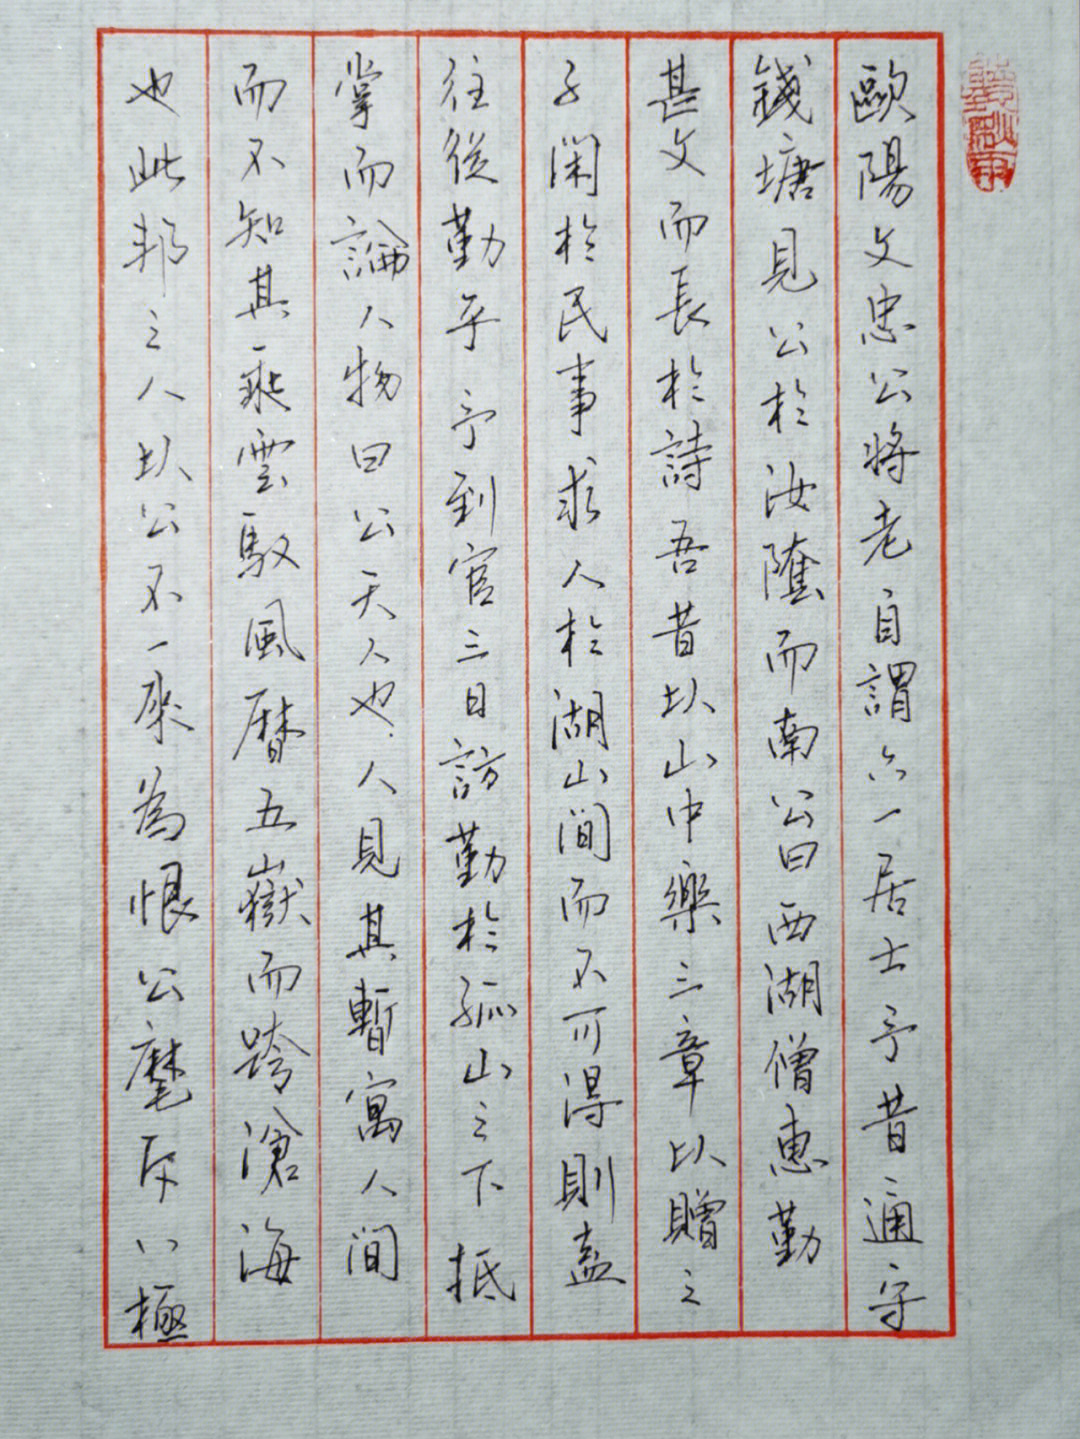 歐陽文忠公將老自謂六一居士予昔通守
錢塘見公於汝陰而南公曰西湖僧惠勤
甚文而長於詩吾昔以山中樂三章以贈之
子閑於民事求人於湖山間而不可得則盍
往從勤乎予到官三日訪勤於孤山之下抵
掌而論人物曰公天人也人見其暫寓人間
而不知其乘雲馭風歷五嶽而跨滄海
也此邦之人以公不一來為恨公麾斥八極